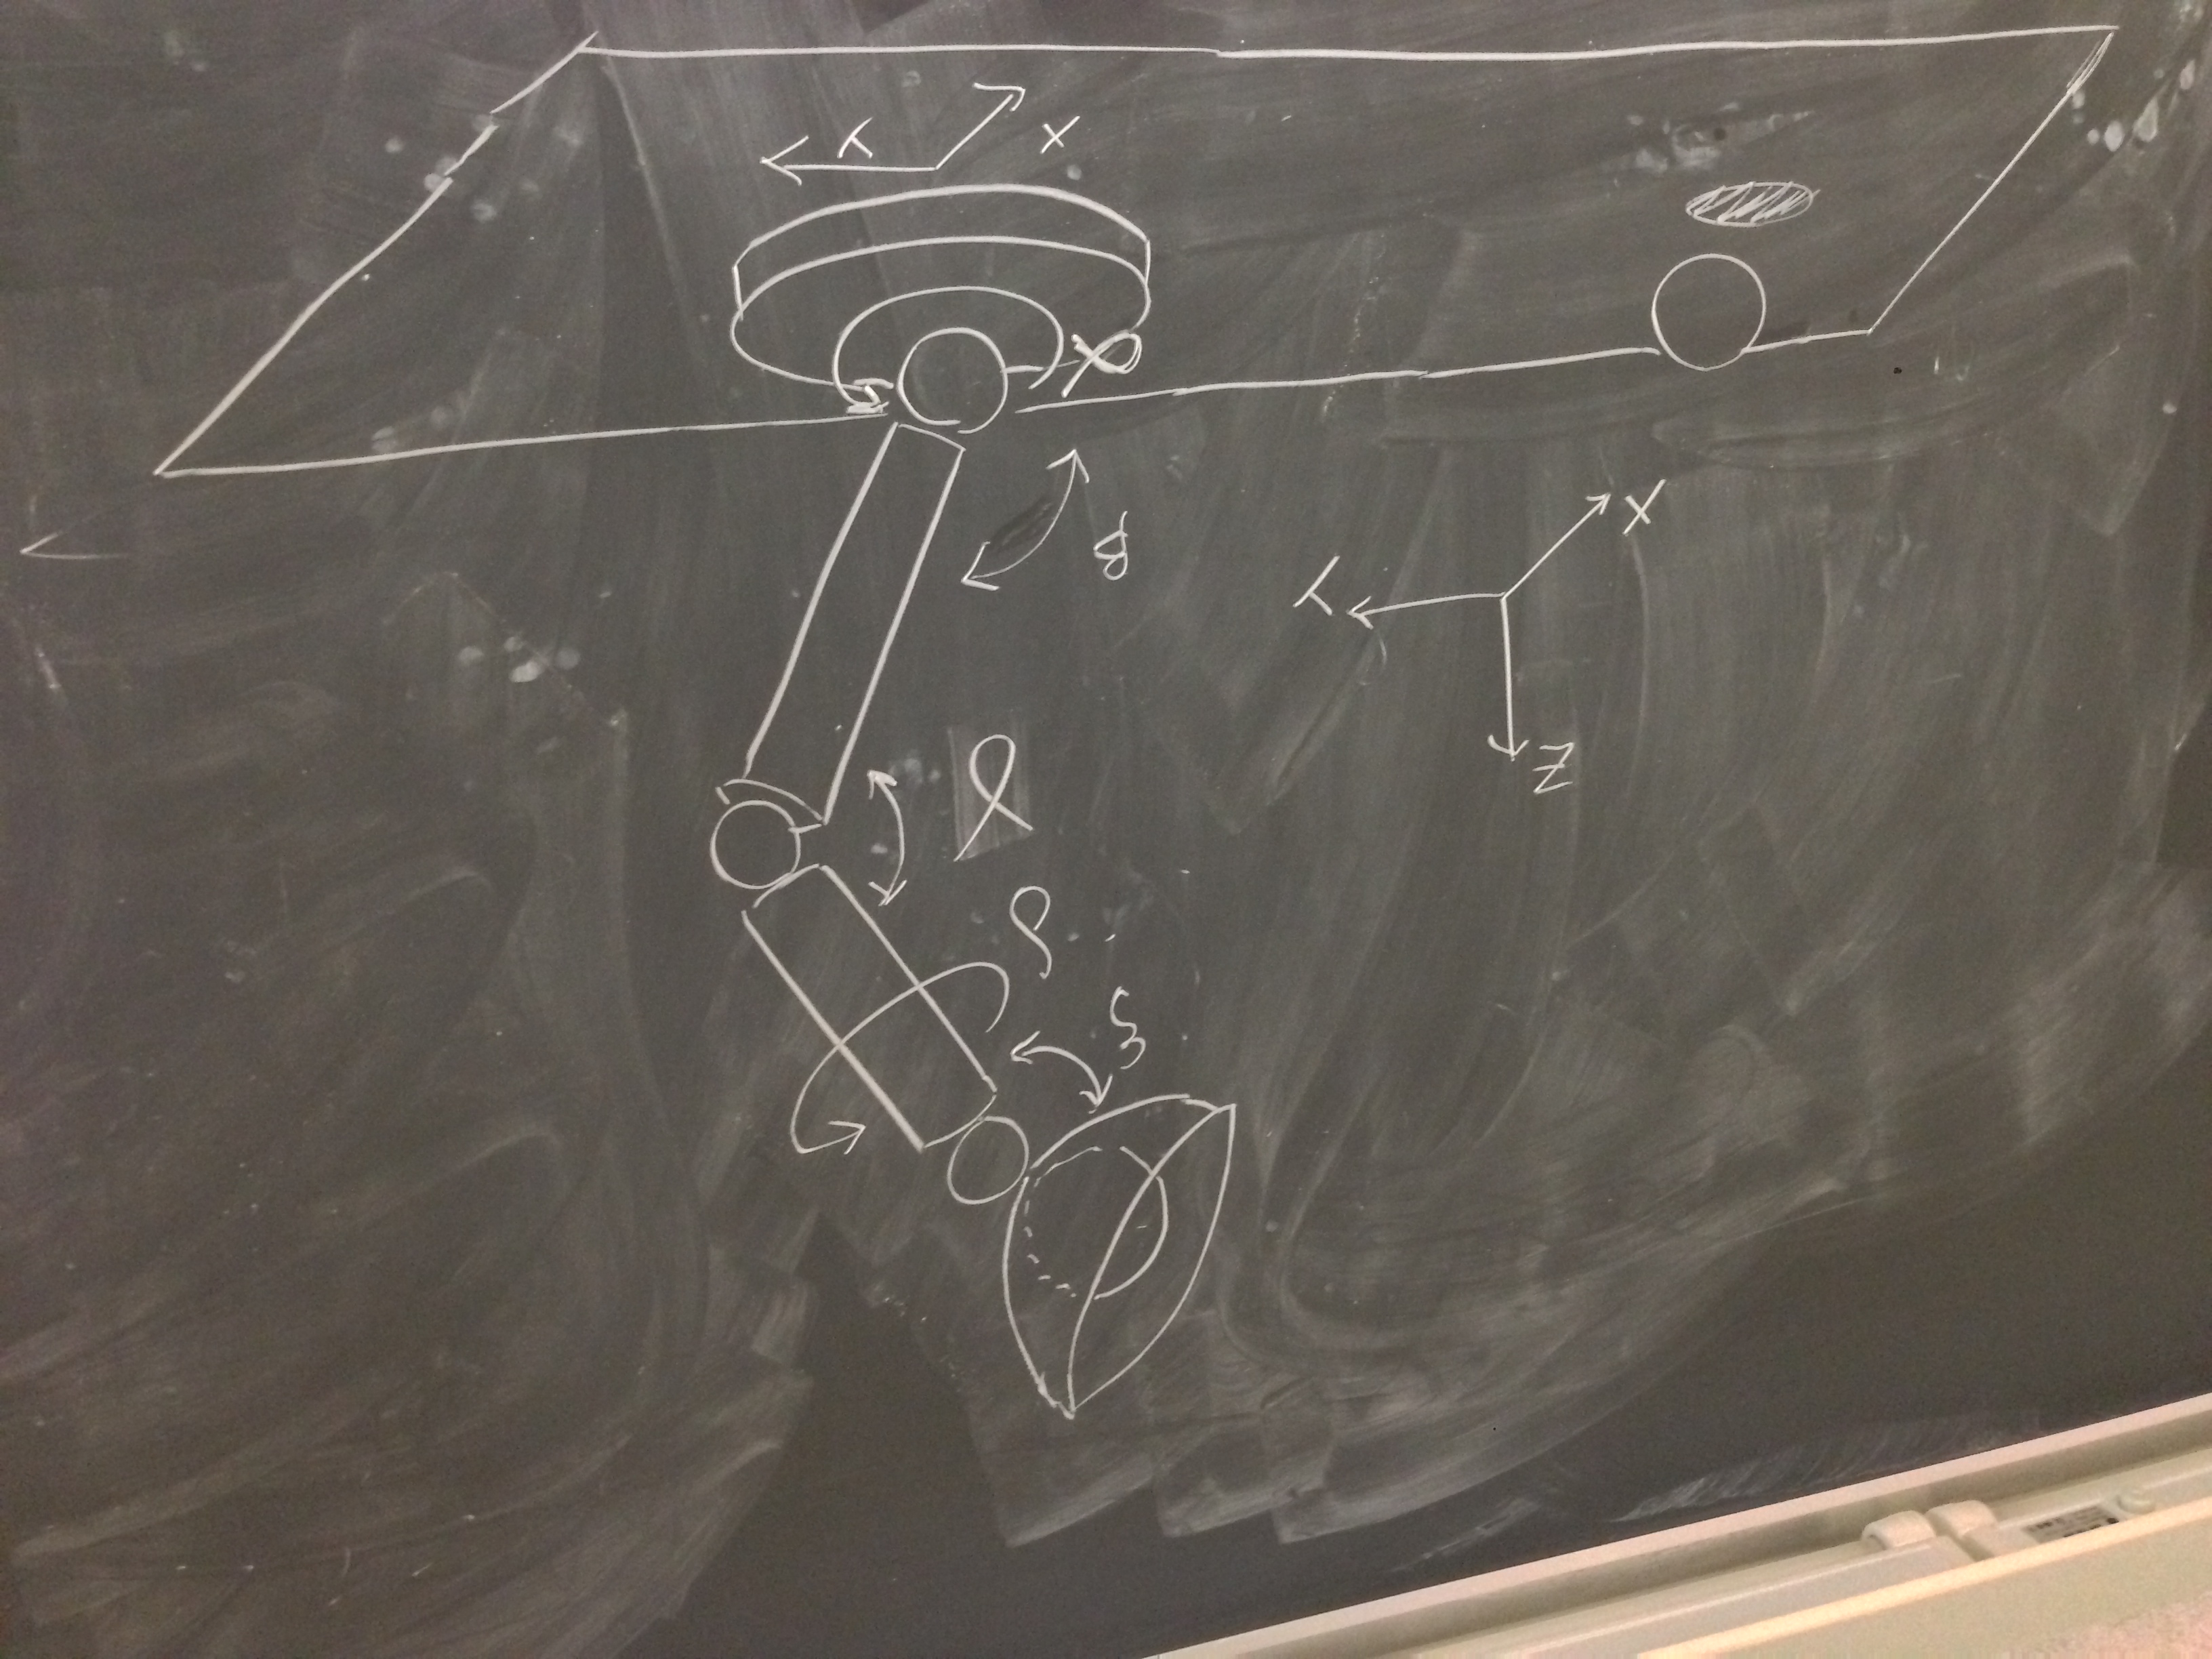 ξ
δ
γ
Z
y
X
β
α
x
y